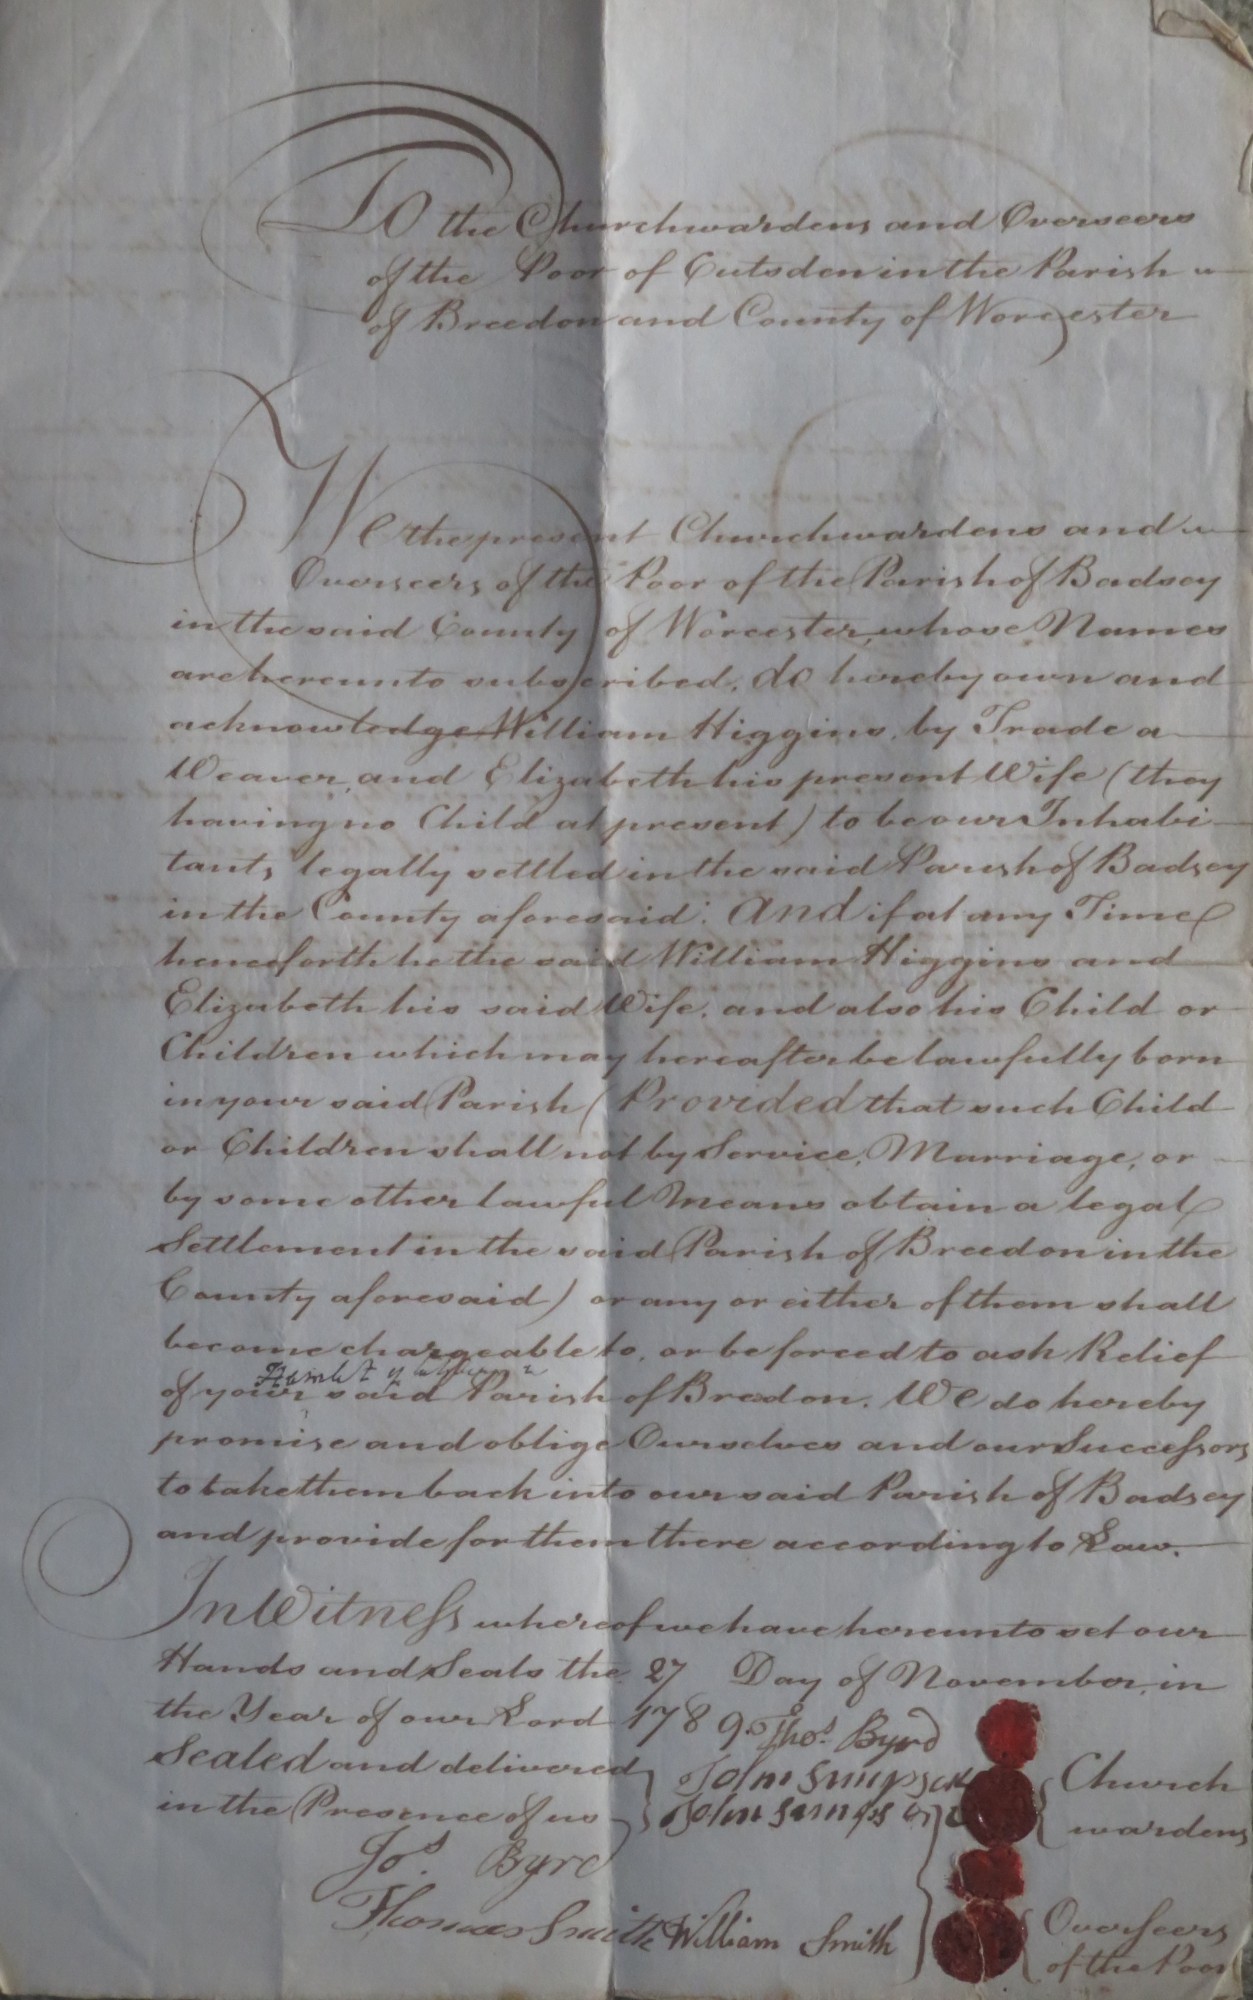 TO the Churchwardens and Overseers
of the Poor of Cutsden in the Parish
of Breedon and County of Worcester
We the present Churchwardens and
Overseers of the Poor of the Parish of Badsey
in the said County of Worcester, whose Names
are hereunto subscribed, do hereby own and
acknowledge William Higgins, by Trade a
Weaver, and Elizabeth his present Wife (they
having no Child at present) to be our Inhabi-
tants legally settled in the said Parish of Badsey
in the County aforesaid: And if at any Time
henceforth he the said William Higgins and
Elizabeth his said Wife, and also his Child or
Children which may hereafter be lawfully born
in your said Parish (Provided that such Child
or Children shall not by Service, Marriage, or
by some other lawful Means obtain a legal
Settlement in the said Parish of Breedon in the
County aforesaid) or any or either of them shall
become chargeable to, or be forced to ask Relief
Hamlet of
of your said Parish of Bredon. We do hereby
promise and oblige Ourselves and our Successors
to take them back into our said Parish of Badsey
and provide for them there according to Law.
In Witness whereof we have hereunto set our
Hands and Seals the 27 Day of November, in
the Year of our Lord 1789. Thos. Byrd
Sealed and delivered } John Simpson } Church
in the Presence of us } John Simpson } wardens
Jos. Byrd
Thomas Smith William Smith } Overseers
of the Poor